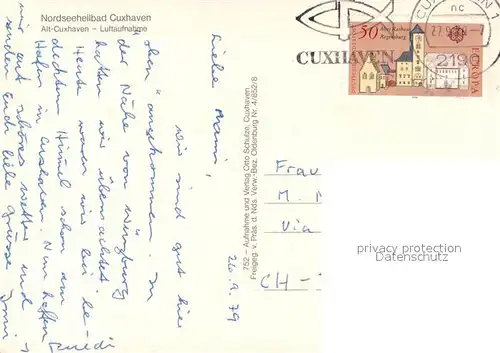 Nordseeheilbad Cuxhaven
Alt-Cuxhaven – Luftaufnahme
CUXHAVEN
nc
27.9.79-7
2190
CUXHAVEN
50
Altes Rathaus
Regensburg
EUROPA
DEUTSCHE BUNDESPOST
26.9.79
Liebe Mami,
wir sind gut hier
"oben" angekommen. In
der Nähe von Würzburg
hatten wir übernachtet.
Heute waren wir bei be-
decktem Himmel schon am
Hafen in Cuxhaven. Nun hoffen
wir auf schönes Wetter und
senden Euch liebe Grüsse
752 – Aufnahme und Verlag Otto Schulze, Cuxhaven
Freigeg. v. Präs. d. Nds. Verw.-Bez. Oldenburg Nr. 4/852/8
Frau
M. M
Via
CH-
privacy protection
Datenschutz